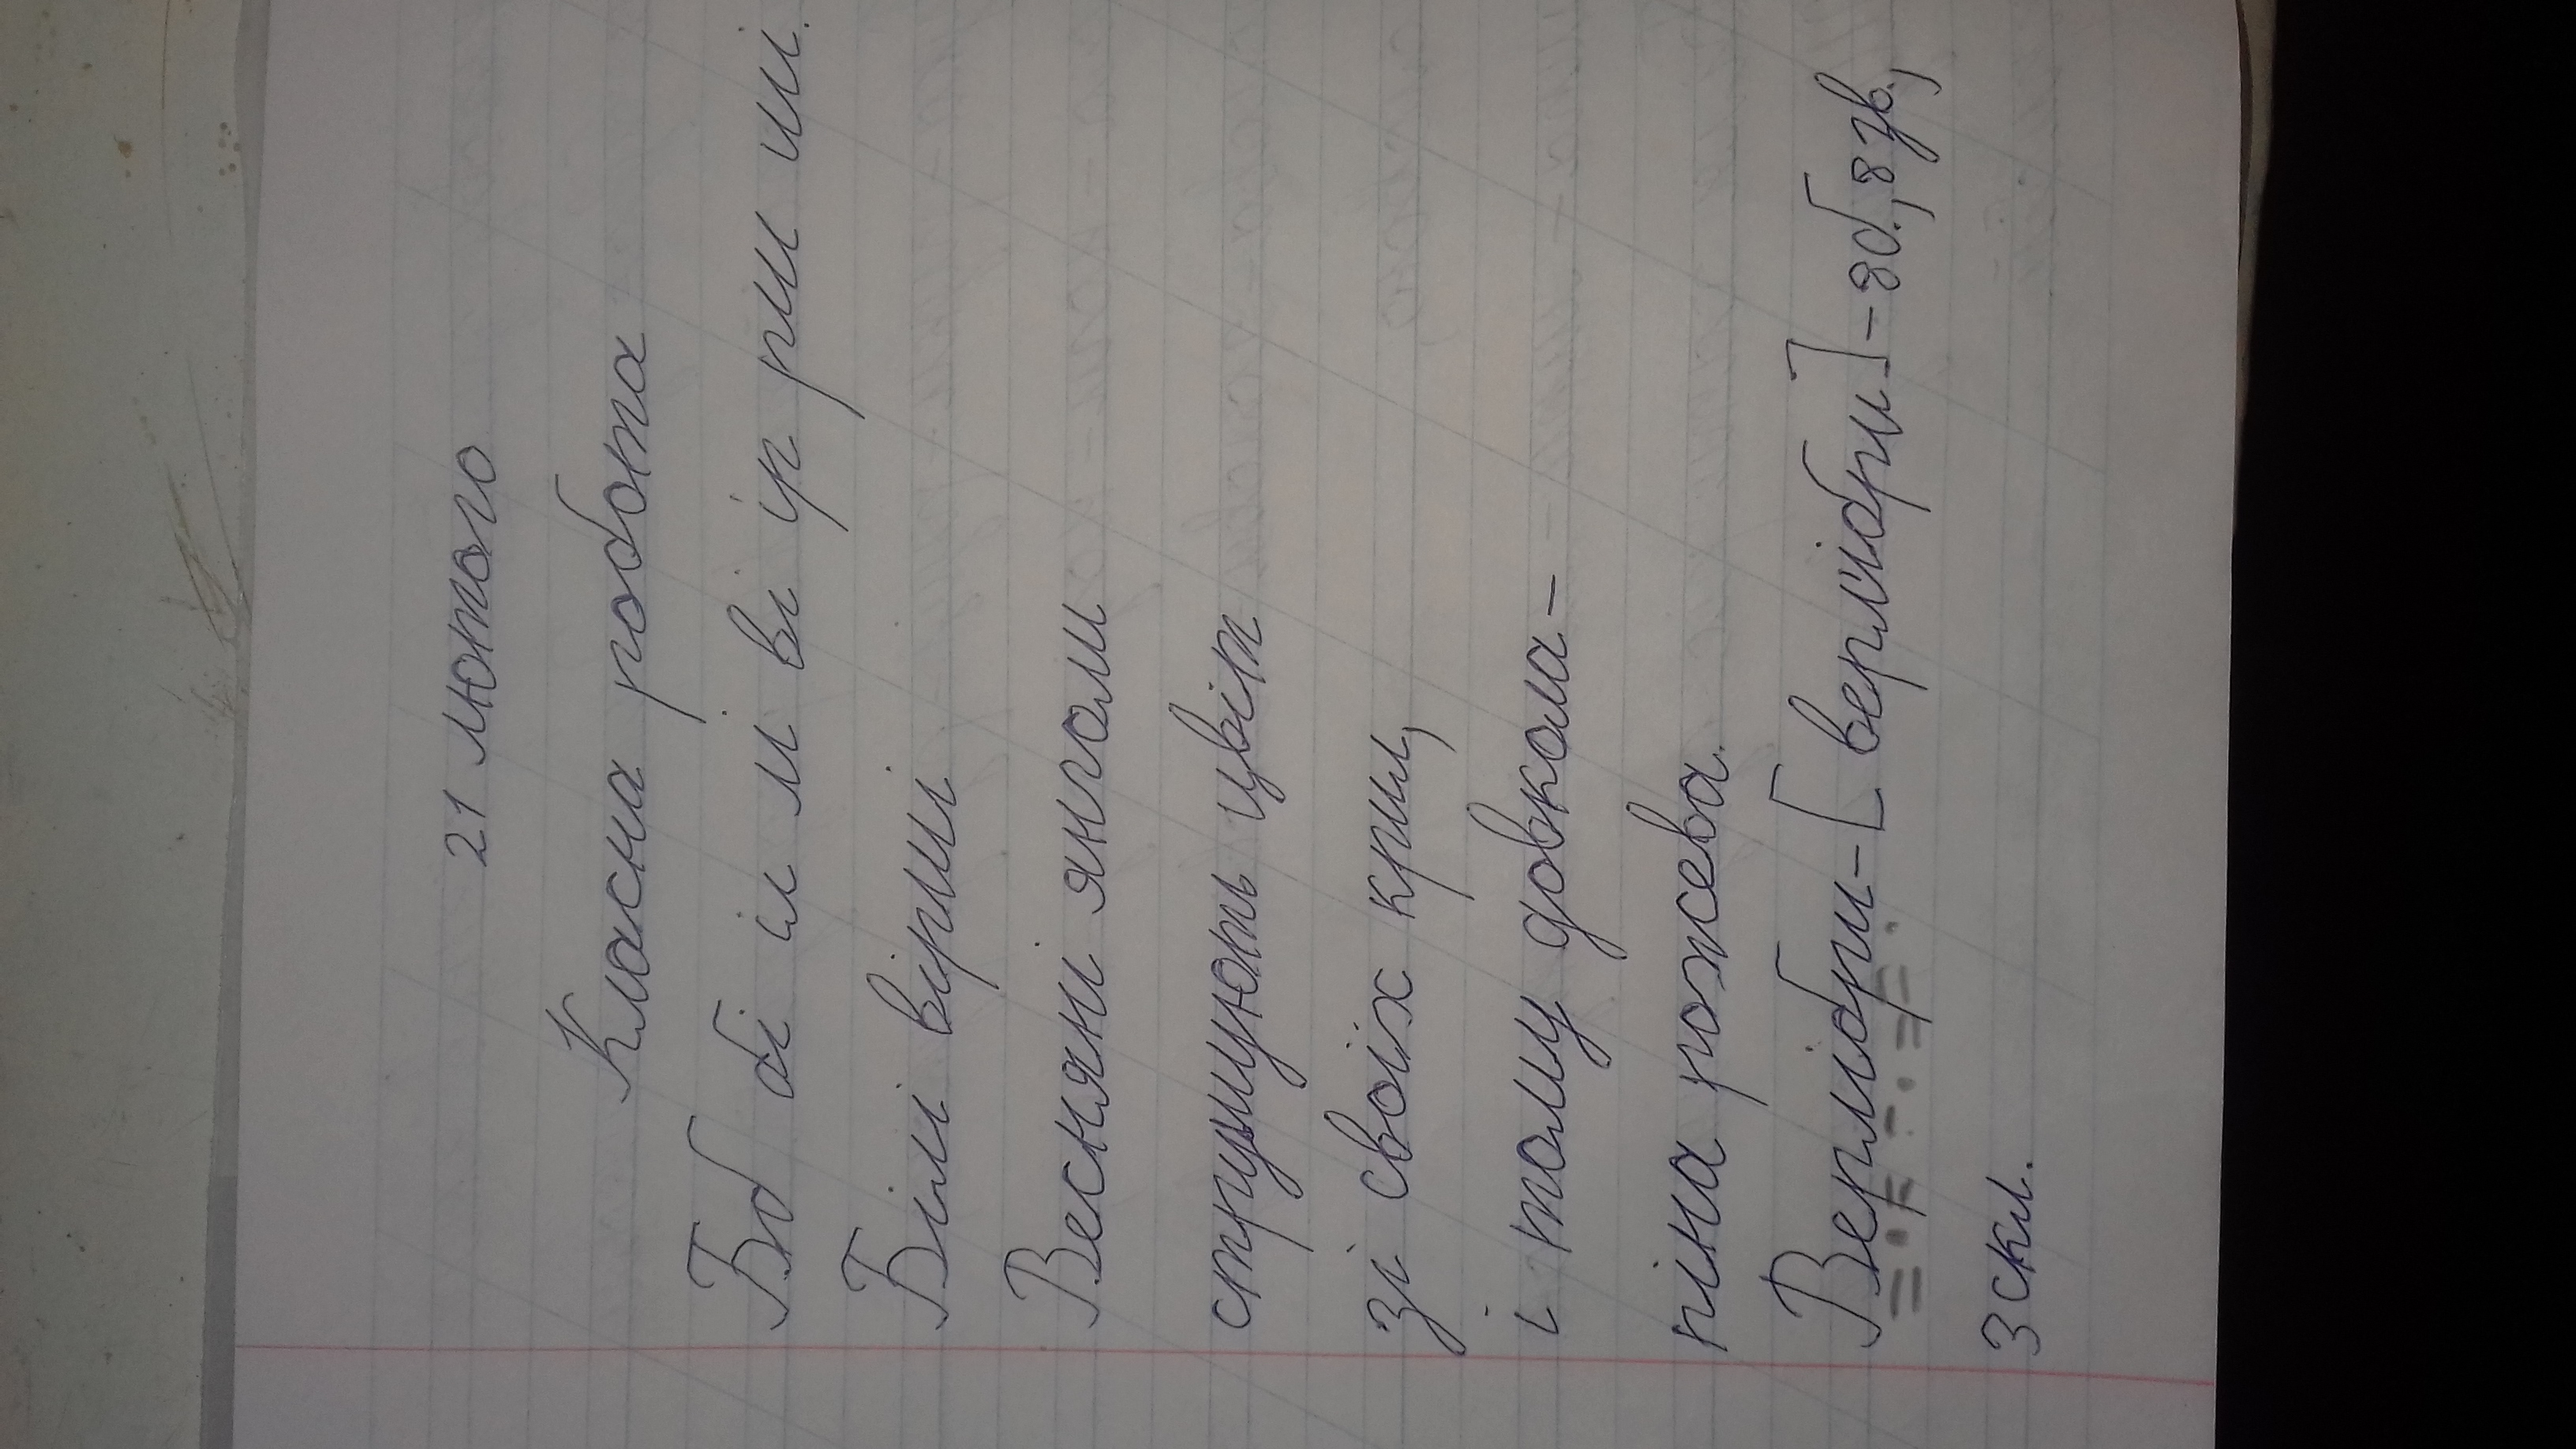 21 лютого
Класна робота
Бб бі іл лі ві ір ри ші.
Білі вірші
Весняні янголи
струшують цвіт
зі своїх крил,
і тому довкола –
піна рожева.
Верлібри – [верлібри] – 8б., 8 зв.,
3 скл.